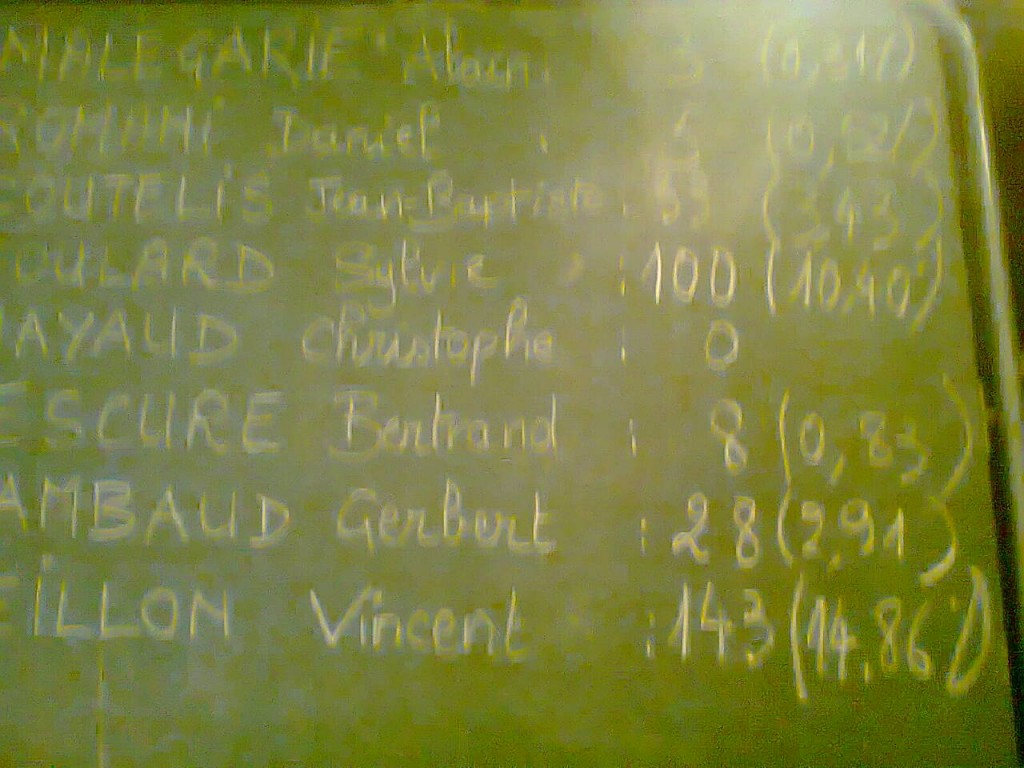 MALEGARIE Alain : 3 (0,31)
Daniel : 5 (0,52)
OUTELiS Jean-Baptiste : 33 (3,43)
OULARD Sylvie : 100 (10,40)
AYAUD Christophe : 0
ESCURE Bertrand : 8 (0,83)
AMBAUD Gerbert : 28 (2,91)
EiLLON Vincent : 143 (14,86)